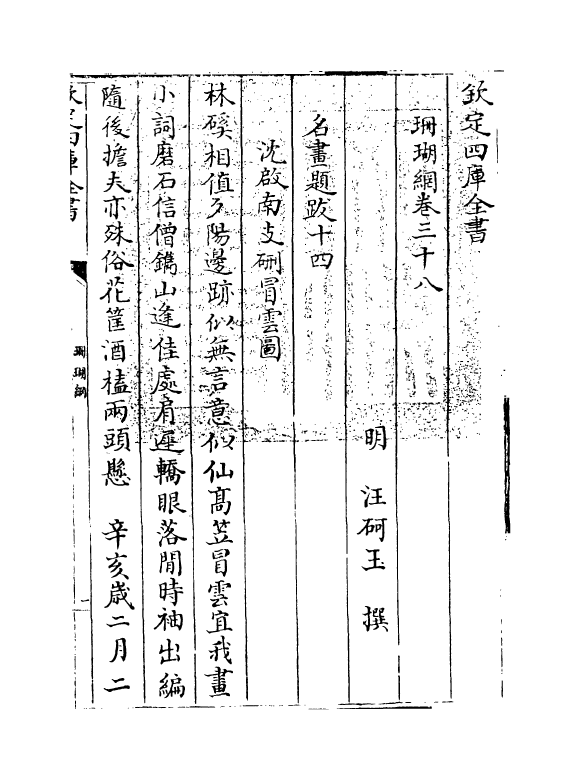 欽定四庫全書
珊瑚網卷三十八
明 汪砢玉 撰
名畫題跋十四
沈啟南支硎冒雲圖
林磎相值夕陽邊跡似無言意似仙髙笠冒雲宜我畫
小詞磨石信僧鐫山逢佳處肩遲轎眼落閒時袖出編
隨後擔夫亦殊俗花筐酒榼兩頭懸 辛亥歲二月二
欽定四庫全書
珊瑚網
一